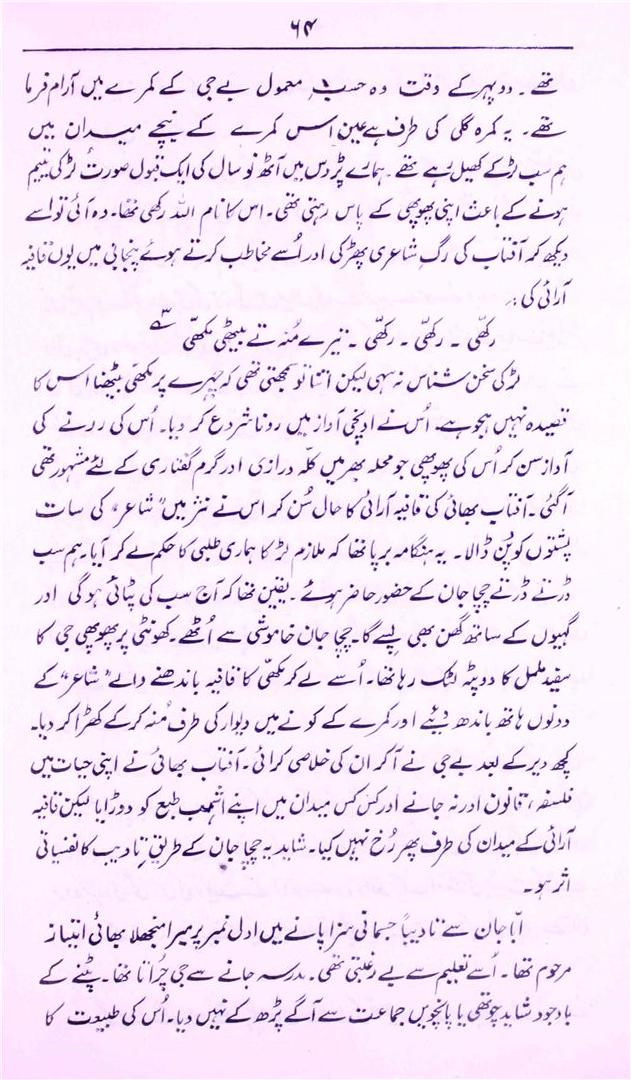 ۶۴
تھے۔ دوپہر کے وقت وہ حسب معمول بے جی کے کمرے میں آرام فرما
تھے۔ یہ کمرہ گلی کی طرف ہے عین اس کمرے کے نیچے میدان میں
ہم سب لڑکے کھیل رہے تھے۔ ہمارے پڑوس میں آٹھ نو سال کی ایک قبول صورت لڑکی یتیم
ہونے کے باعث اپنی پھوپھی کے پاس رہتی تھی۔ اس کا نام اللہ رکھی تھا۔ وہ آئی تو اسے
دیکھ کر آفتاب کی رگِ شاعری پھڑکی اور اُسے مخاطب کرتے ہوئے پنجابی میں یوں قافیہ
آرائی کی:۔
رکھّی ۔ رکھّی ۔ رکھّی ۔ تیرے مُنہ تے بیٹھی مکھّی
لڑکی سخن شناس نہ سہی لیکن اتنا تو سمجھتی تھی کہ چہرے پر مکھّی بیٹھنا اس کا
قصیدہ نہیں ہجو ہے۔ اُس نے اونچی آواز میں رونا شروع کر دیا۔ اُس کی رونے کی
آواز سن کر اُس کی پھوپھی جو محلہ بھر میں کلہ درازی اور گرم گفتاری کے لئے مشہور تھی
آ گئی۔ آفتاب بھائی کی قافیہ آرائی کا حال سُن کر اس نے نثر میں "شاعر" کی سات
پشتوں کو پُن ڈالا۔ یہ ہنگامہ برپا تھا کہ ملازم لڑکا ہماری طلبی کا حکم لے کر آیا۔ ہم سب
ڈرتے ڈرتے چچا جان کے حضور حاضر ہوئے۔ یقین تھا کہ آج سب کی پٹائی ہو گی اور
گیہوں کے ساتھ گھن بھی پسے گا۔ چچا جان خاموشی سے اُٹھے۔ کھونٹی پر پھوپھی جی کا
سفید ململ کا دوپٹہ لٹک رہا تھا۔ اُسے لے کر مکھّی کا قافیہ باندھنے والے "شاعر" کے
دونوں ہاتھ باندھ دیئے اور کمرے کے کونے میں دیوار کی طرف مُنہ کر کے کھڑا کر دیا۔
کچھ دیر کے بعد بے جی نے آ کر ان کی خلاصی کرائی۔ آفتاب بھائی نے اپنی حیات میں
فلسفہ، قانون اور نہ جانے اور کس کس میدان میں اپنے اشہبِ طبع کو دوڑایا لیکن قافیہ
آرائی کے میدان کی طرف پھر رُخ نہیں کیا۔ شاید یہ چچا جان کے طریقِ تادیب کا نفسیاتی
اثر ہو۔
ابّا جان سے تادیباً جسمانی سزا پانے میں اول نمبر پر میرا منجھلا بھائی امتیاز
مرحوم تھا۔ اُسے تعلیم سے بے رغبتی تھی۔ مدرسہ جانے سے جی چُراتا تھا۔ پٹنے کے
باوجود شاید چوتھی یا پانچویں جماعت سے آگے پڑھ کے نہیں دیا۔ اُس کی طبیعت کا